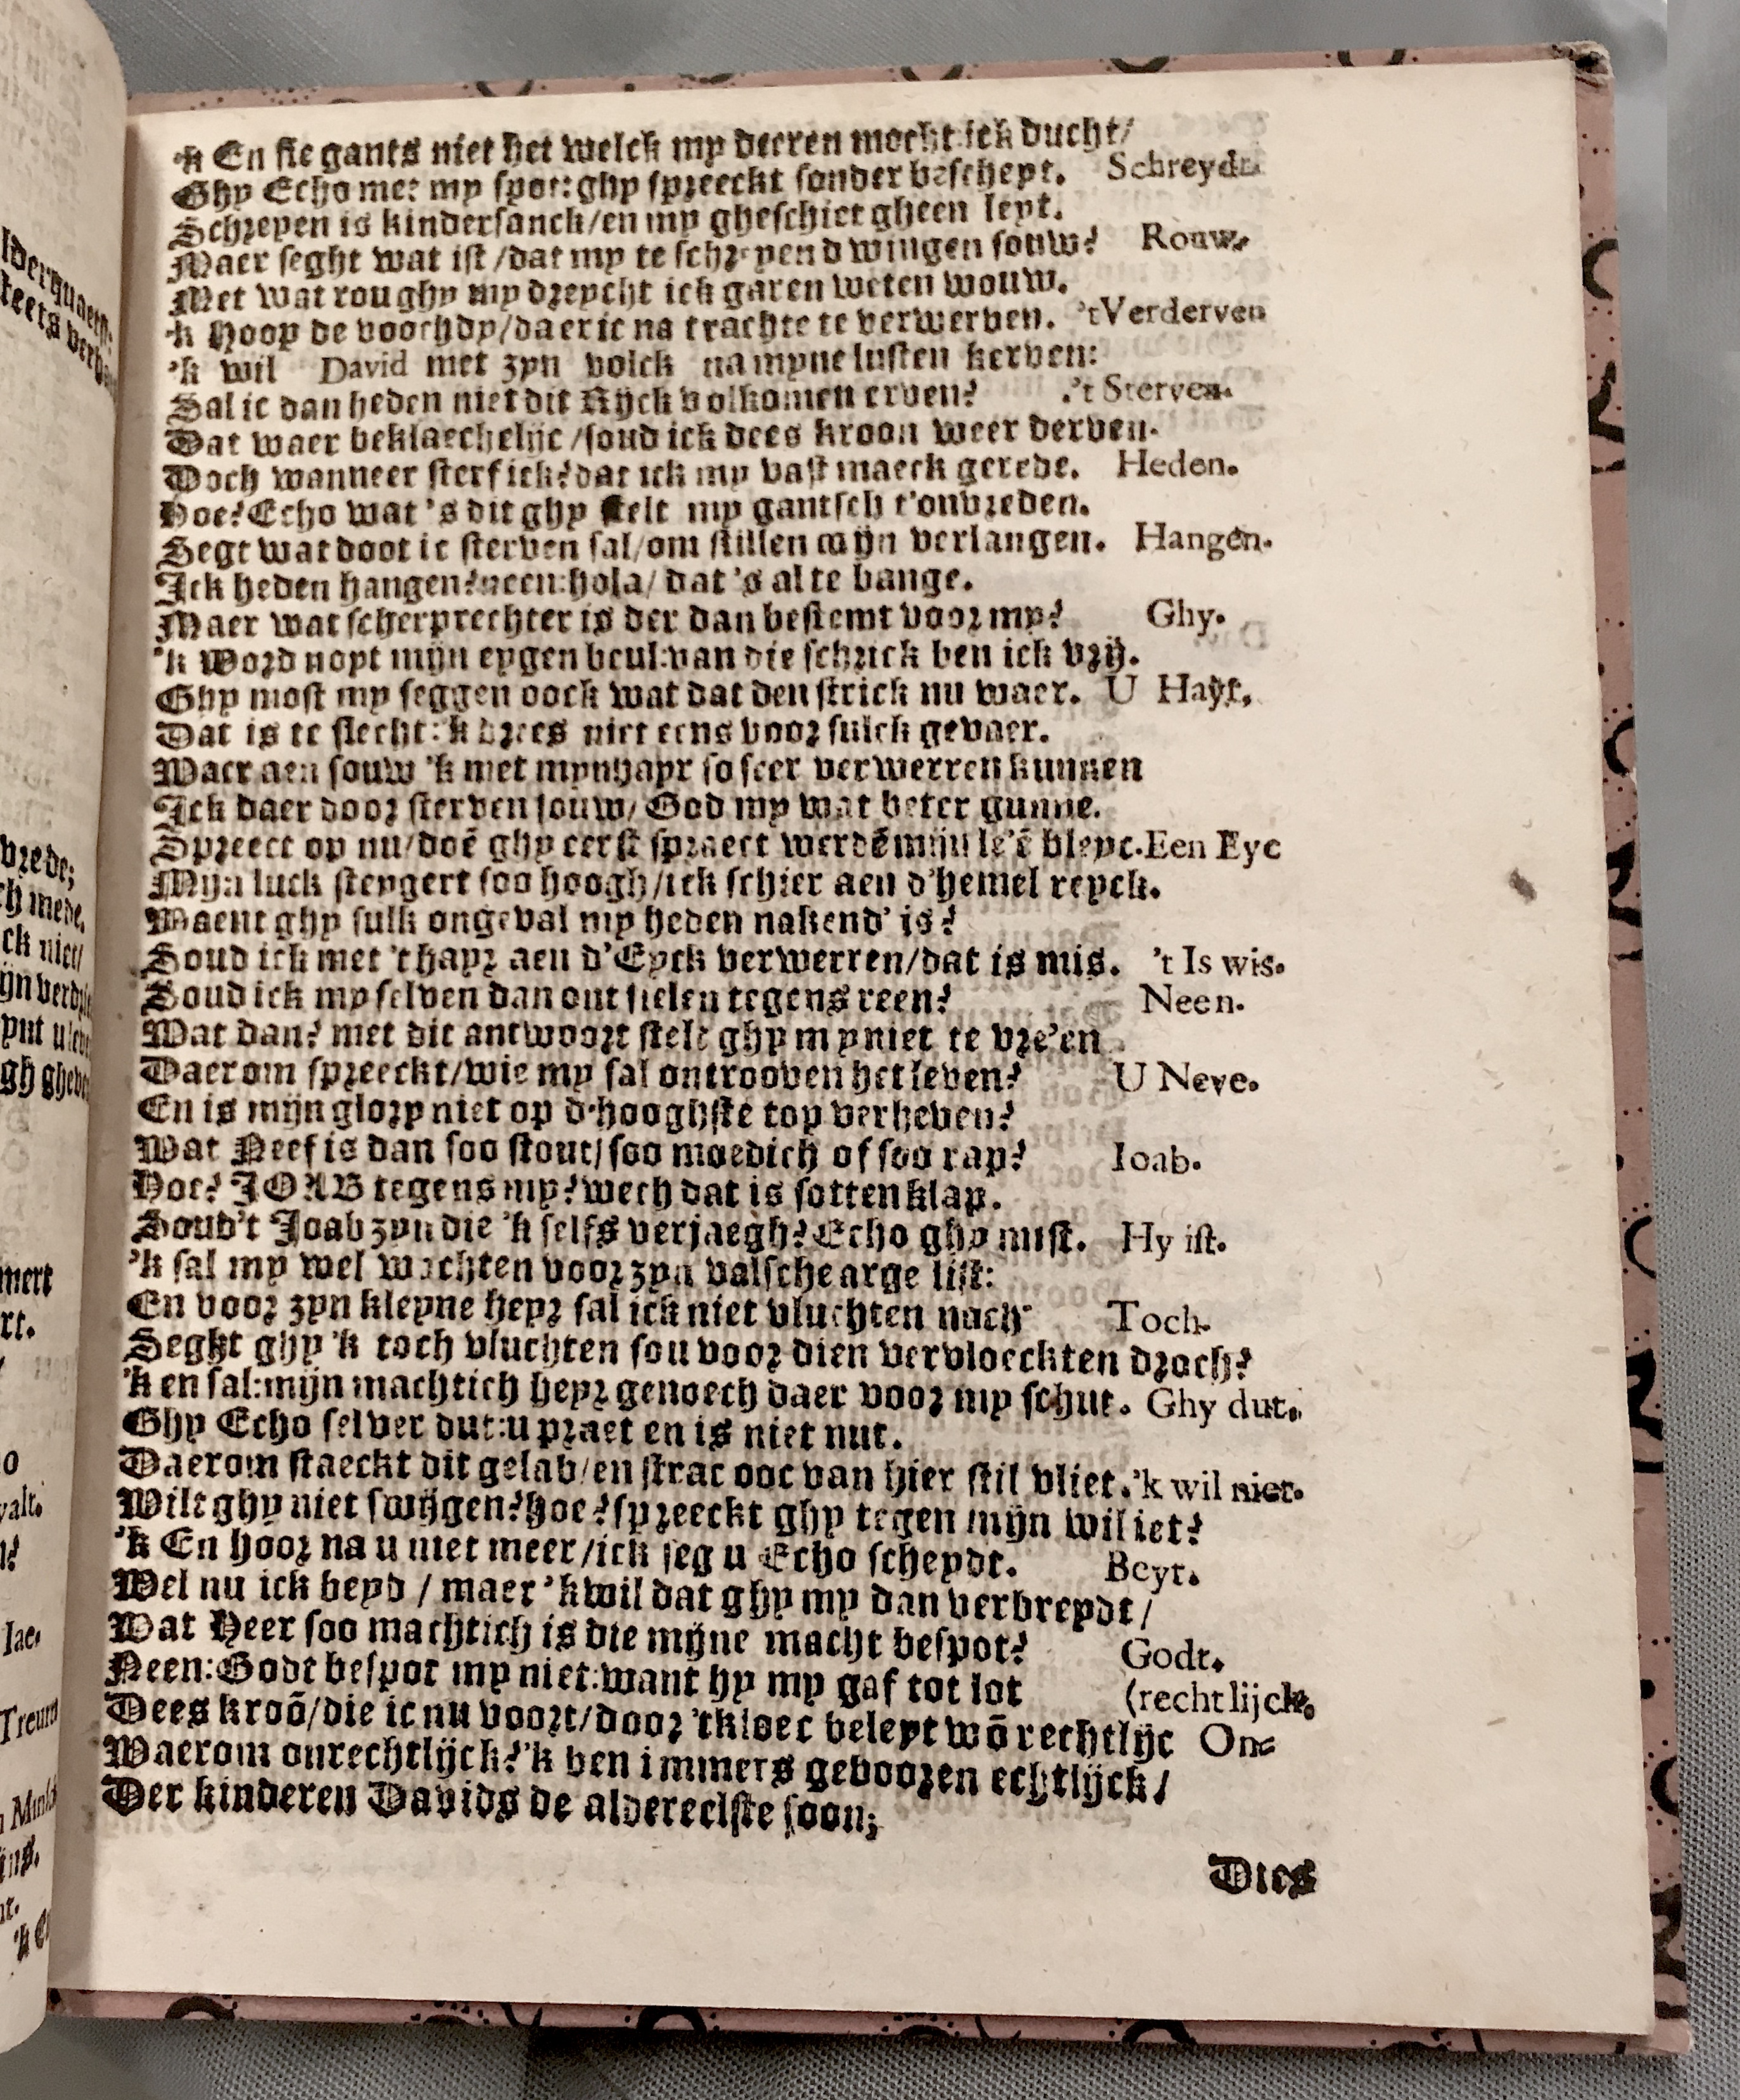 'k En sie gants niet het welck my deeren mocht: ick ducht/
Ghy Echo met my spot: ghy spreeckt sonder bescheyt. Schreydt.
Schreyen is kindersanck/en my gheschiet gheen leyt.
Maer seght wat ist/dat my te schreyen dwingen souw? Rouw.
Met wat rou ghy my dreycht ick garen weten wouw.
'k Hoop de voochdy/daer ic na trachte te verwerven. 't Verderven
'k wil David met zyn volck na myne lusten kerven:
Sal ic dan heden niet dit Rijck volkomen erven? 't Sterven.
Dat waer beklaechelijc/soud ick dees kroon weer derven.
Doch wanneer sterf ick? dat ick my vast maeck gerede. Heden.
Hoe? Echo wat 's dit ghy stelt my gantsch t'onvreden.
Segt wat doot ic sterven sal/om stillen mijn verlangen. Hangen.
Ick heden hangen? neen: hola/ dat 's al te bange.
Maer wat scherprechter is der dan bestemt voor my? Ghy.
'k Word noyt mijn eygen beul: van die schrick ben ick vrij.
Ghy most my seggen oock wat dat den strick nu waer. U Hayr.
Dat is te slecht: 'k vrees niet eens voor sulck gevaer.
Waer aen souw 'k met myn hayr so seer verwerren kunnen
Ick daer door sterven souw/ God my wat beter gunne.
Spreect op nu/doē ghy eerst spraect werdē mijn le'ē bleyc. Een Eyc
Mijn luck steygert soo hoogh/ick schier aen d'hemel reyck.
Maent ghy sulk ongeval my heden nakend' is?
Soud ick met 't hayr aen d'Eyck verwerren/dat is mis. 't Is wis.
Soud ick my selven dan ontsielen tegens reen? Neen.
Wat dan? met dit antwoort stelt ghy my niet te vre'en
Daerom spreeckt/wie my sal ontrooven het leven? U Neve.
En is mijn glory niet op d'hooghste top verheven?
Wat Neef is dan soo stout/soo moedich of soo rap? Ioab.
Hoe? JOAB tegens my? wech dat is sotten klap.
Soud't Joab zyn die 'k selfs verjaegh? Echo ghy mist. Hy ist.
'k sal my wel wachten voor zyn valsche arge list:
En voor zyn kleyne heyr sal ick niet vluchten noch Toch.
Seght ghy 'k toch vluchten sou voor dien vervloeckten droch?
'k en sal: mijn machtich heyr genoech daer voor my schut. Ghy dut.
Ghy Echo selver dut: u praet en is niet nut.
Daerom staeckt dit gelab/en strac ooc van hier stil vliet. 'k wil niet.
Wilt ghy niet swijgen? hoe? spreeckt ghy tegen mijn wil iet?
'k En hoor na u niet meer/ick seg u Echo scheydt. Beyt.
Wel nu ick beyd / maer 'k wil dat ghy my dan verbreydt/
Wat Heer soo machtich is die mijne macht bespot? Godt.
Neen: Godt bespot my niet: want hy my gaf tot lot (rechtlijck.
Dees kroō/die ic nu voort/door 't kloec beleyt wō rechtlijc On-
Waerom onrechtlijck? 'k ben immers geboozen echtlijck/
Der kinderen Davids de aldereelste soon;
Dies